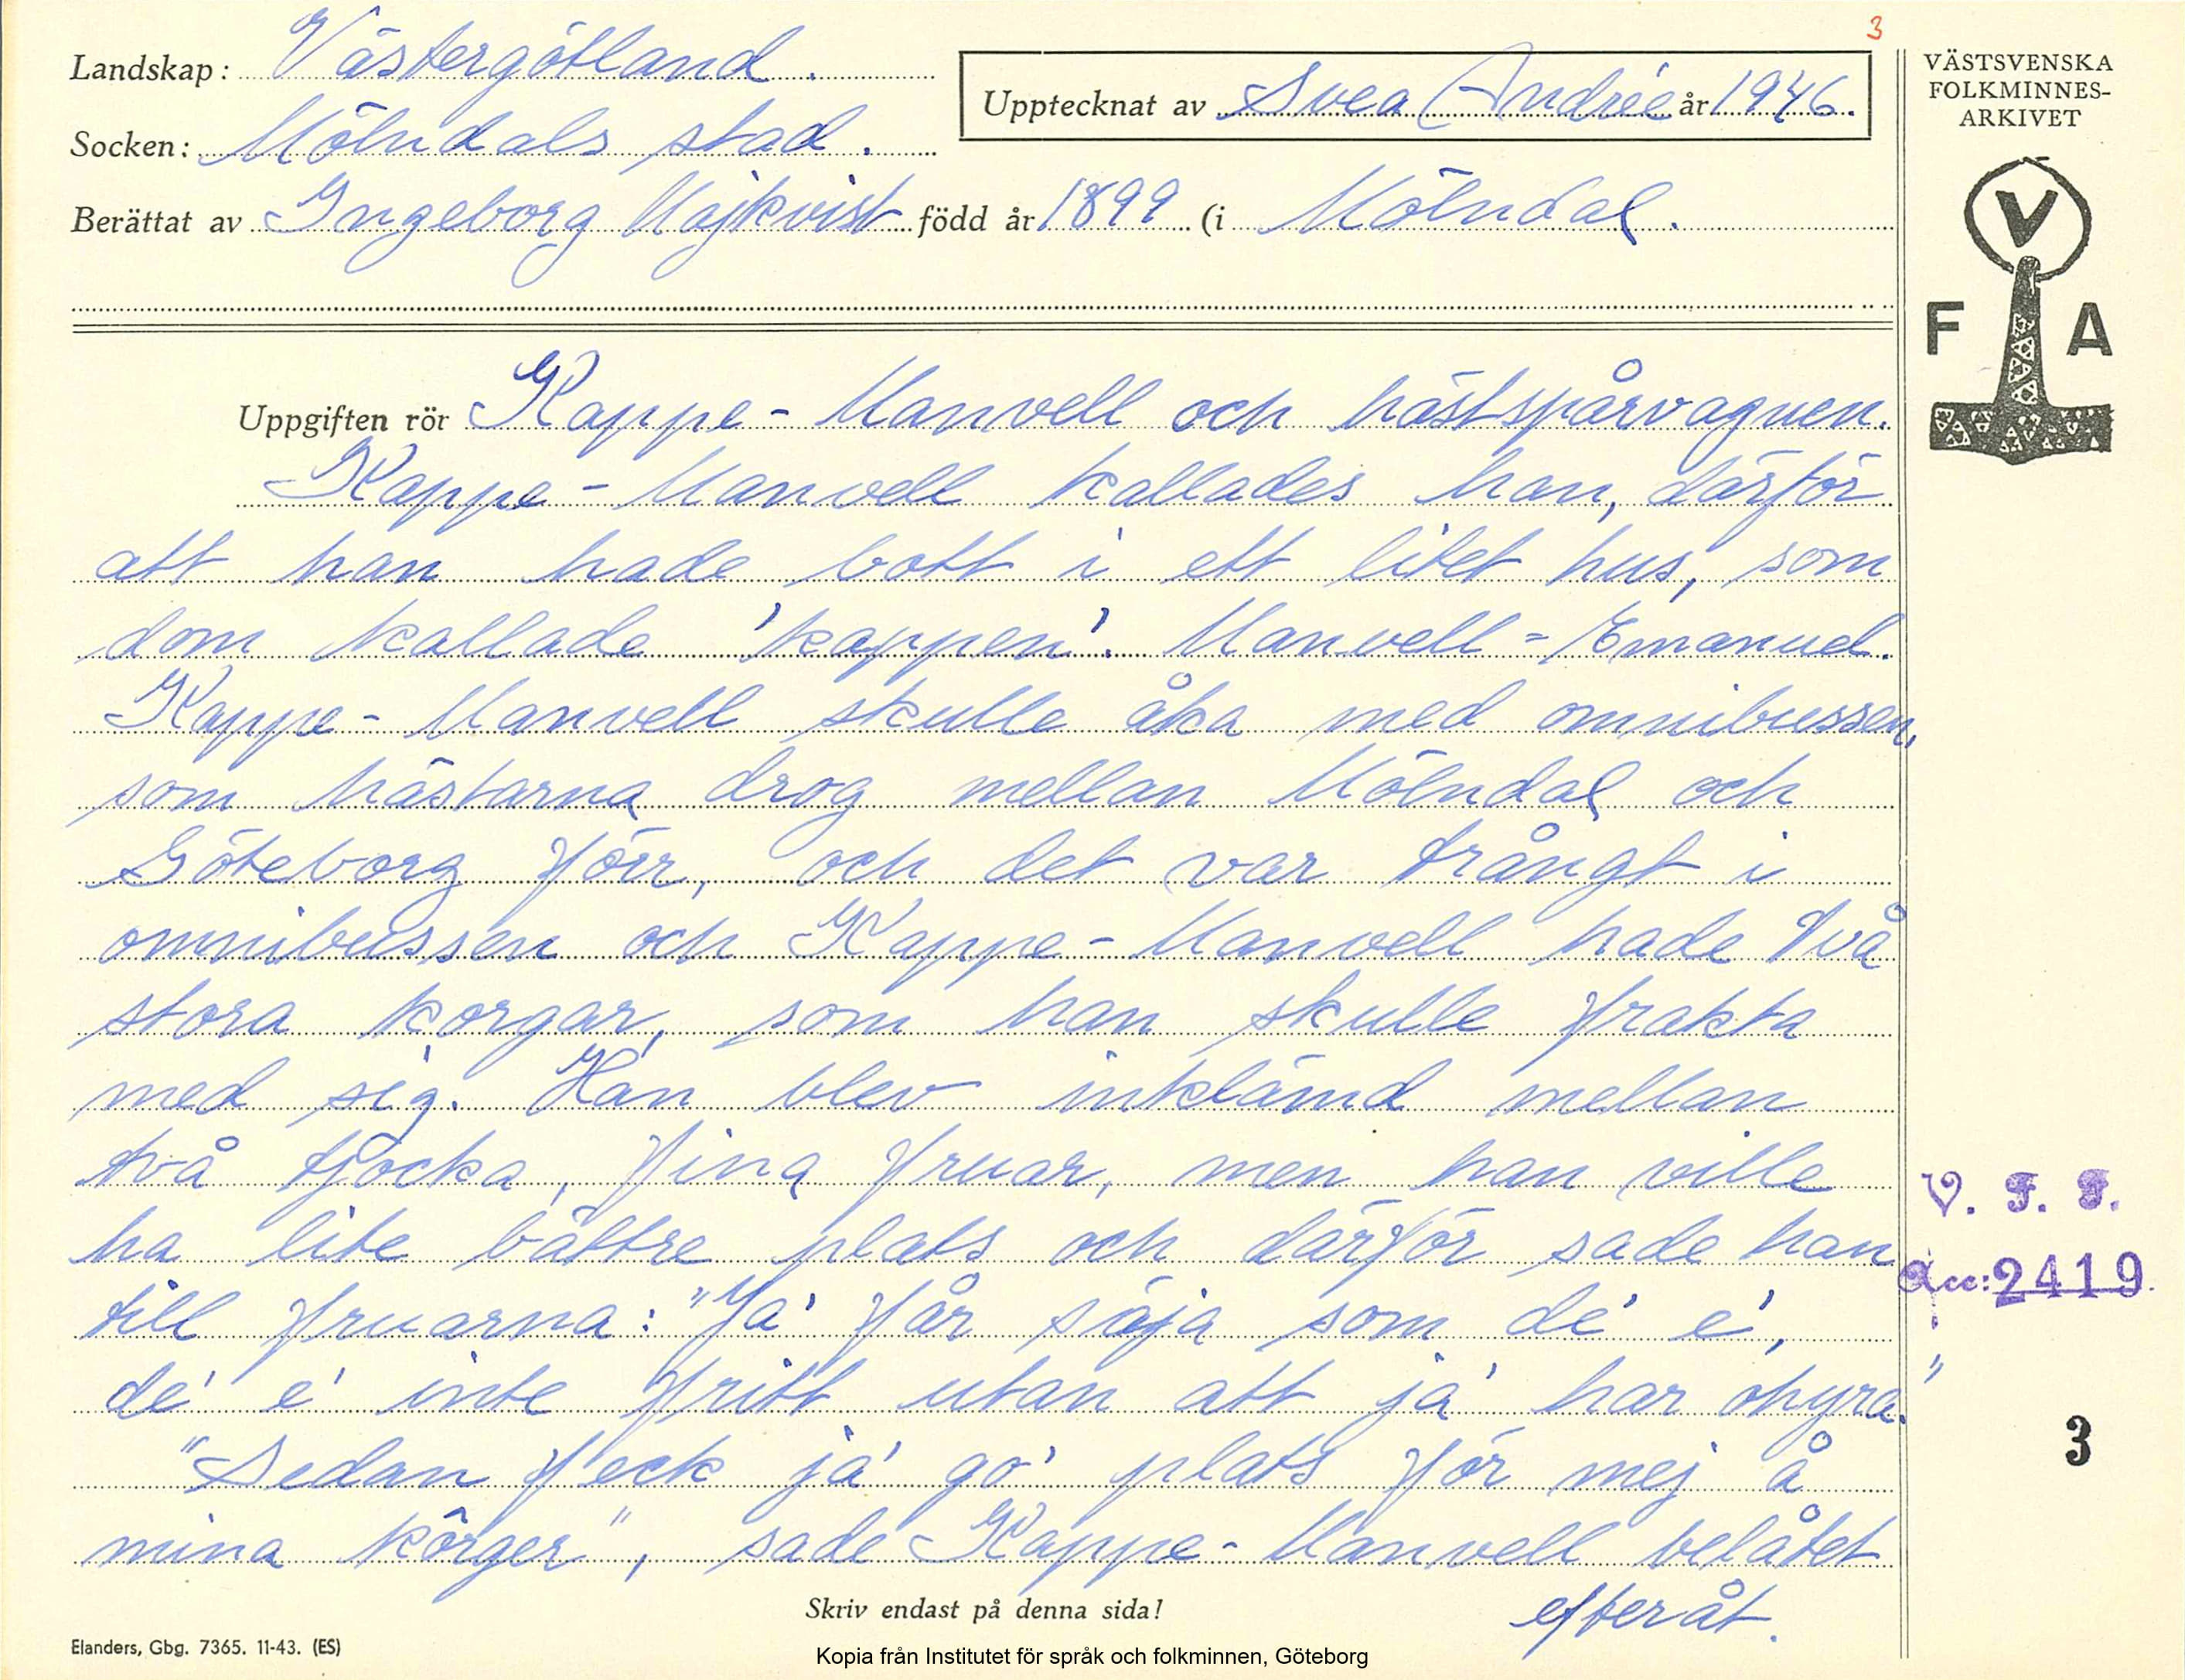 3
Landskap: Västergötland.
Upptecknat av Svea Andrée år 1946.
Socken: Mölndals stad.
Berättat av Ingeborg Majkvist född år 1899 (i Mölndal.
VÄSTSVENSKA
FOLKMINNES-
ARKIVET
V
F A
Uppgiften rör Kappe-Manvell och hästspårvagnen.
Kappe-Manvell kallades han, därför
att han hade bott i ett litet hus, som
dom kallade 'kappen'. Manvell=Emanuel.
Kappe-Manvell skulle åka med omnibussen,
som hästarna drog mellan Mölndal och
Göteborg förr, och det var trångt i
omnibussen och Kappe-Manvell hade två
stora korgar, som han skulle frakta
med sig. Han blev inklämd mellan
två tjocka, fina fruar, men han ville
ha lite bättre plats och därför sade han
till fruarna: "Ja' får säja som de' e',
de' e' inte fritt utan att ja' har ohyra."
"Sedan feck ja' go' plats för mej å
mina körger", sade Kappe-Manvell belåtet
efteråt.
V. F. F.
Acc: 2419
3
Skriv endast på denna sida!
Elanders, Gbg. 7365. 11-43. (ES)
Kopia från Institutet för språk och folkminnen, Göteborg